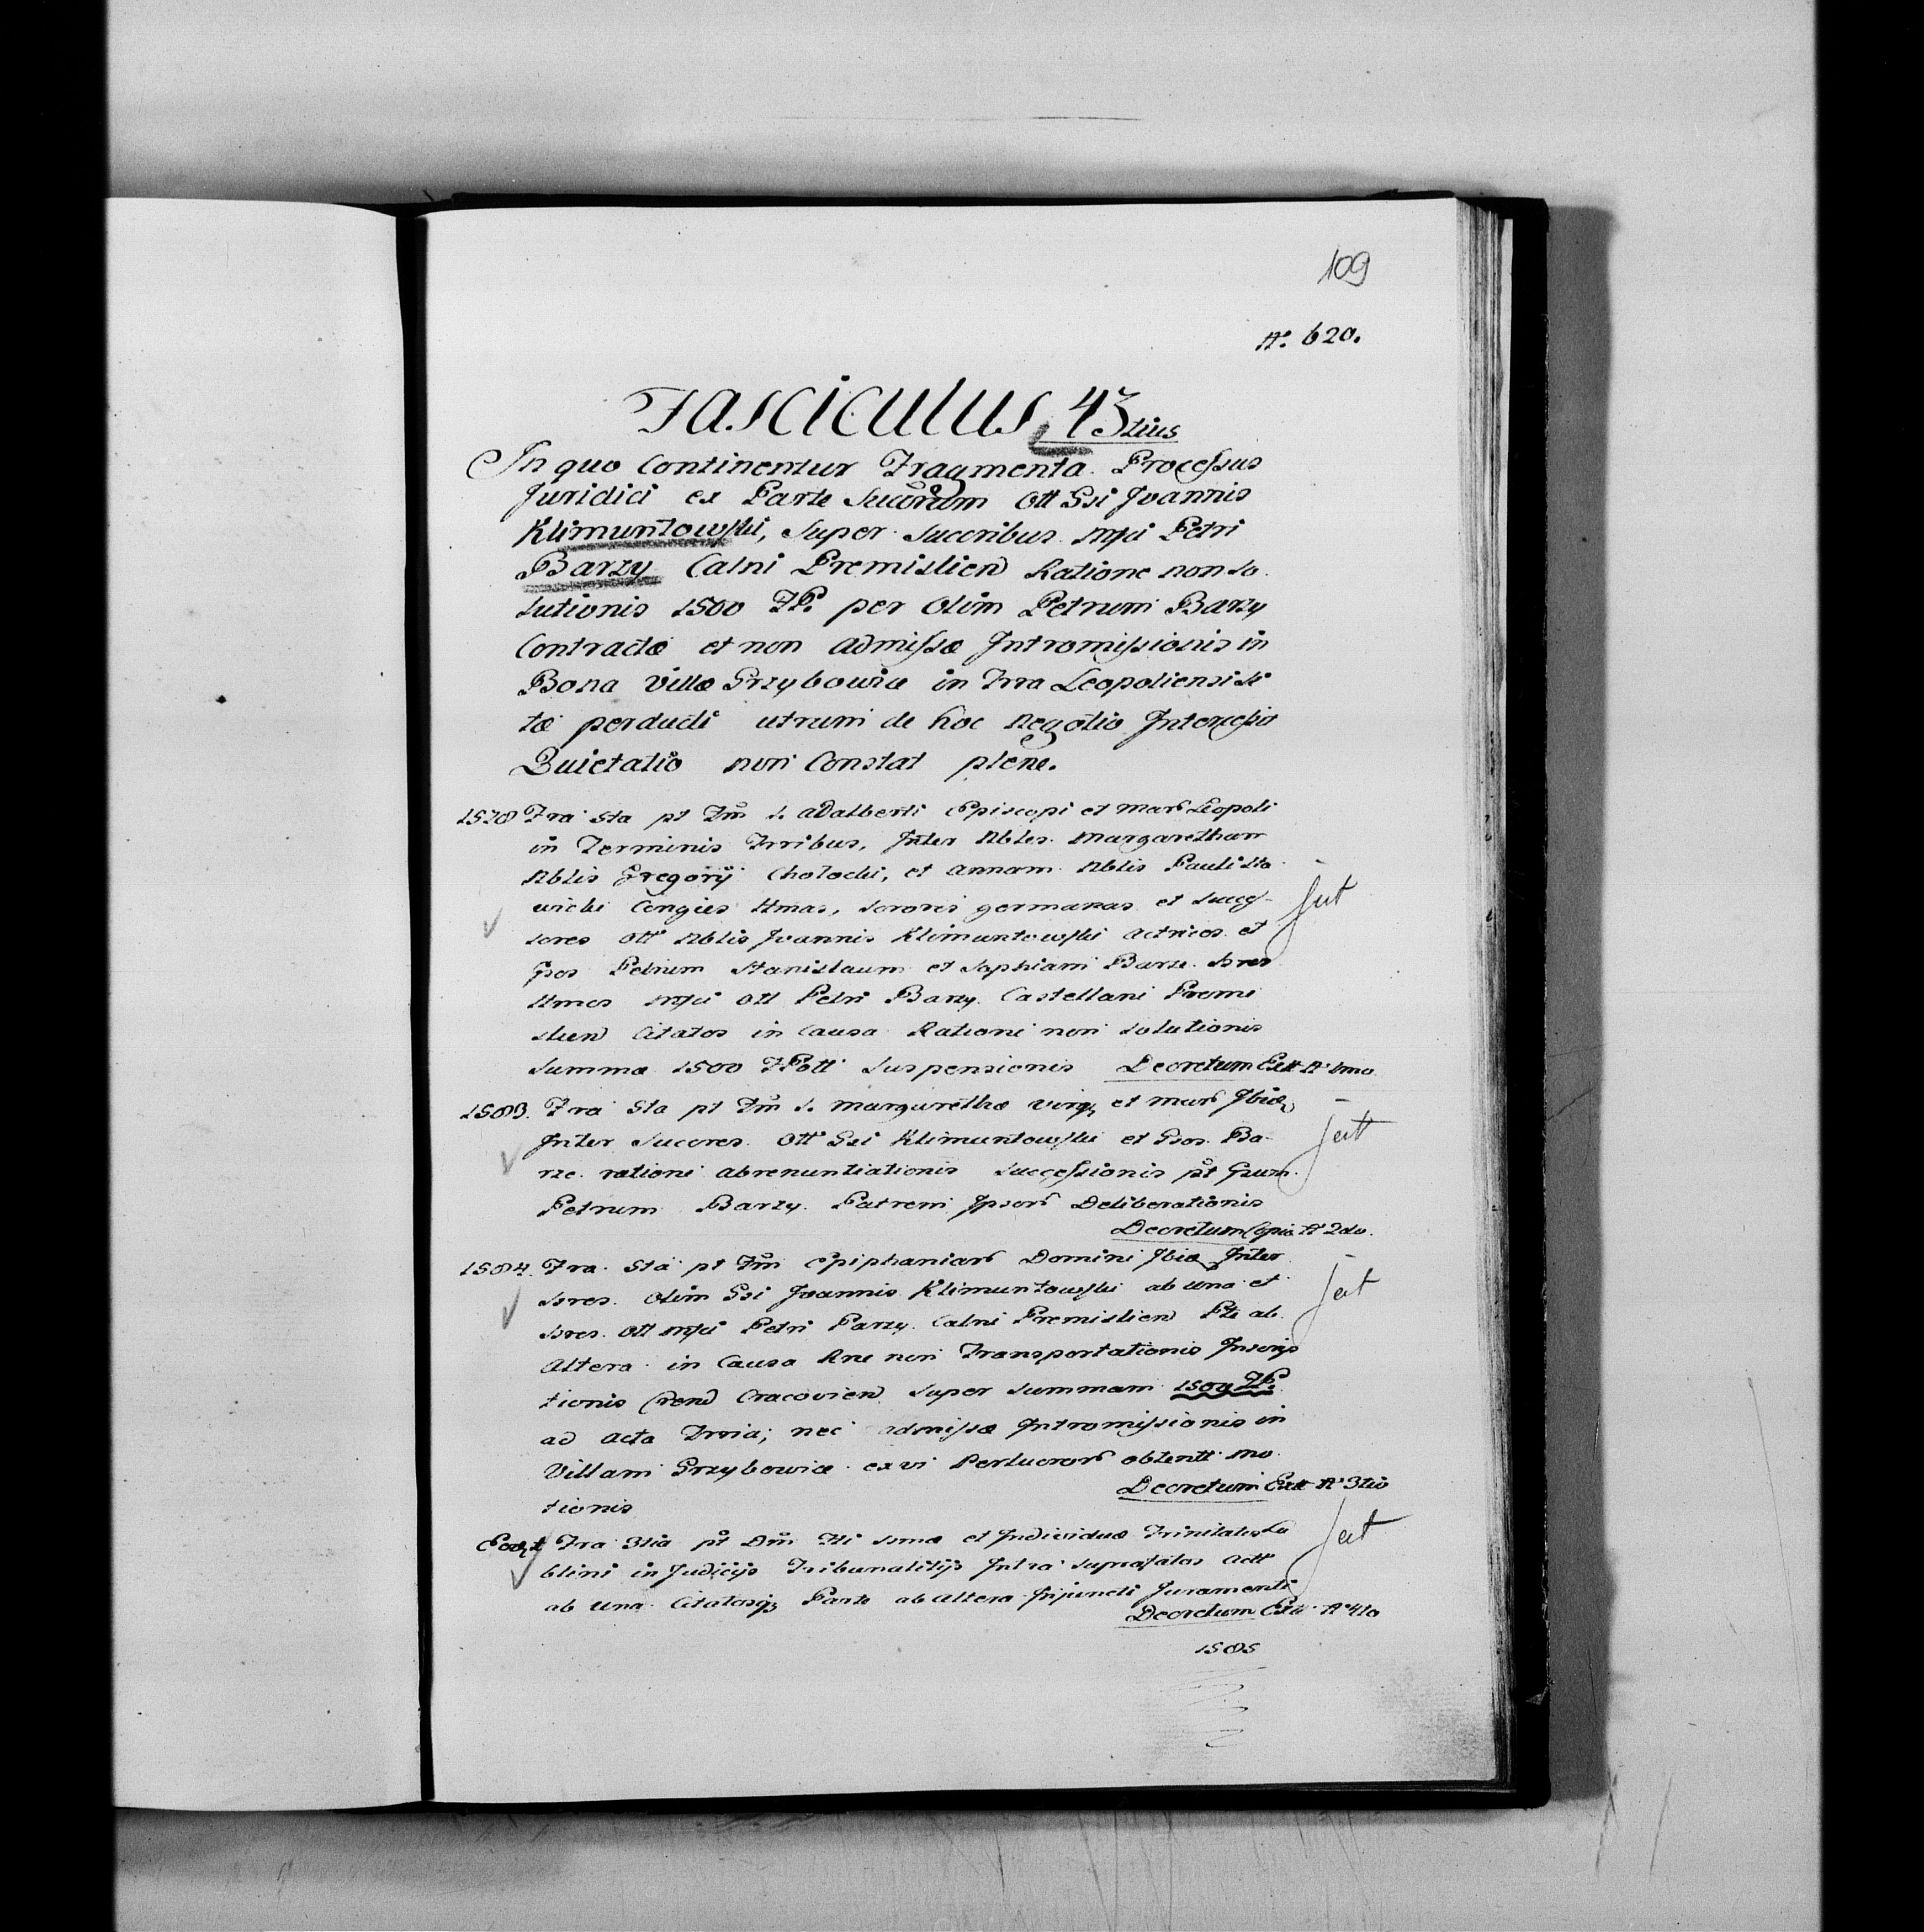 109
N° 620.
Fasciculus 43 tius
In quo Continentur Fragmenta Processus
Juridici ex Parte Sucorum Ott Gsi Joannis
Klimuntowski, Super Succribus Mfci Petri
Barzy Calni Premislien Ratione non so
lutionis 1500 FP. per Olim Petrum Barzy
Contractæ et non admissæ Intromissionis in
Bona Villæ Grzybowice in Trra Leopoliensi si
tæ perducti utrum de hoc Negotio Intercessit
Quietatio non Constat plene.
1578 Fra 6ta pt Fm S. Adalberti Episcopi et Mars Leopoli
in Terminis Trribus, Inter Nbles Margaretham
Nblis Gregorij Cholocki, et Annam Nblis Pauli
Congies ttmas, Sorores germanas et Succes-
sores ott Nblis Joannis Klimuntowski actrices et
Gsos Petrum Stanislaum et Sophiam Barze Ssres
ttmos Mfci Ott Petri Barzy Castellani Premi
slien Citatos in Causa Rationi non Solutionis
Summæ 1500 FPoll Suspensionis Decretum Extt N° 1mo
1583. Fra 6ta pt Fm S. Margarethæ Virg, et Mars Ibid,
Inter Succres Ott Gsi Klimuntowski et Gsos Ba-
rze ratione abrenuntiationis Successionis pt Gsum
Petrum Barzy Patrem Ipsors Deliberationis
Decretum Copia N° 2do.
1584. Fra 6ta pt Fm Epiphaniars Domini Ibid Inter
Ssres Olim Gsi Joannis Klimuntowski ab una et
Ssres Ott Mfci Petri Barzy Calni Premislien Pte ab
Altera in Causa Rne non Transportationis Inscrip
tionis Cracovien Super Summam 1500 FP.
ad Acta Trria; nec admissæ Intromissionis in
Villam Grzybowice ex vi Perlucrors obtentt mo
tionis Decretum Extt N° 3tio
Fra 3tia pt Dm Sti ssmæ et Individuæ Trinitatis Lu
blini in Judicijs Tribunalitijs Intra Suprafatos Actt
ab una Citatosq; Parte ab altera Injuncti Juramenti
Decretum Extt N° 4to
1585